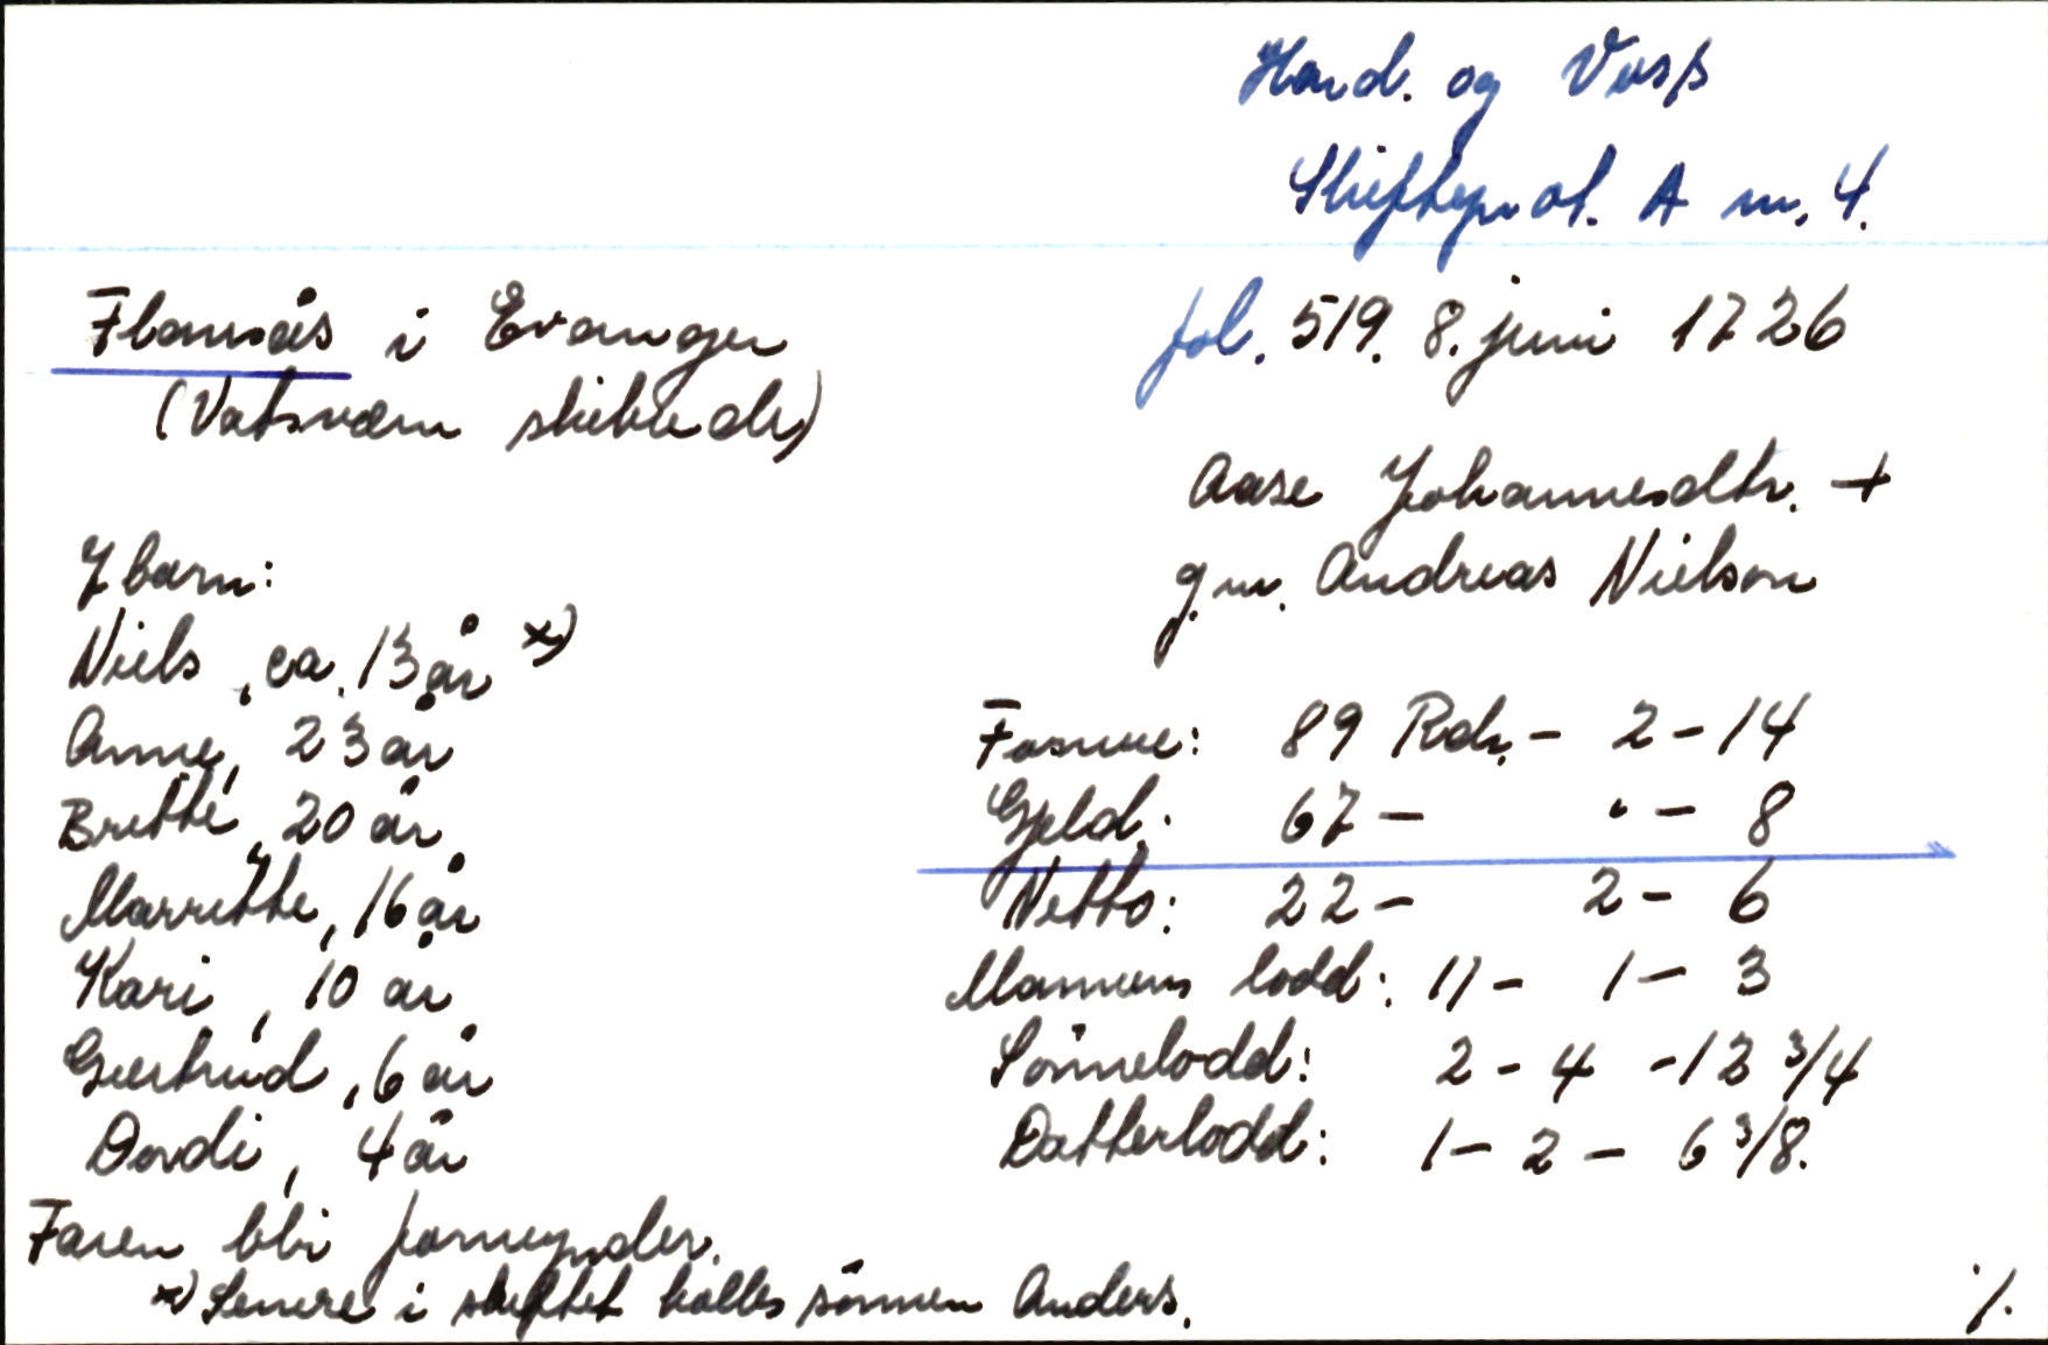 Hard. og Voss
Skifteprot. A nr. 4.
Flamås i Evanger
(Vatsværn skibrede)
fol. 519. 8. juni 1726
Aase Johannesdtr. +
g.m. Andreas Nielson
7 barn:
Niels, ca. 13 år x)
Anne, 23 år
Britte, 20 år
Marritte, 16 år
Kari, 10 år
Giertrud, 6 år
Dordi, 4 år
Faren blir formynder.
x) Senere i skiftet kalles sønnen Anders.
Formue: 89 Rdr. - 2 - 14
Gjeld: 67 - " - 8
Netto: 22 - 2 - 6
Mannens lodd: 11 - 1 - 3
Sönnelodd: 2 - 4 - 12 3/4
Datterlodd: 1 - 2 - 6 3/8.